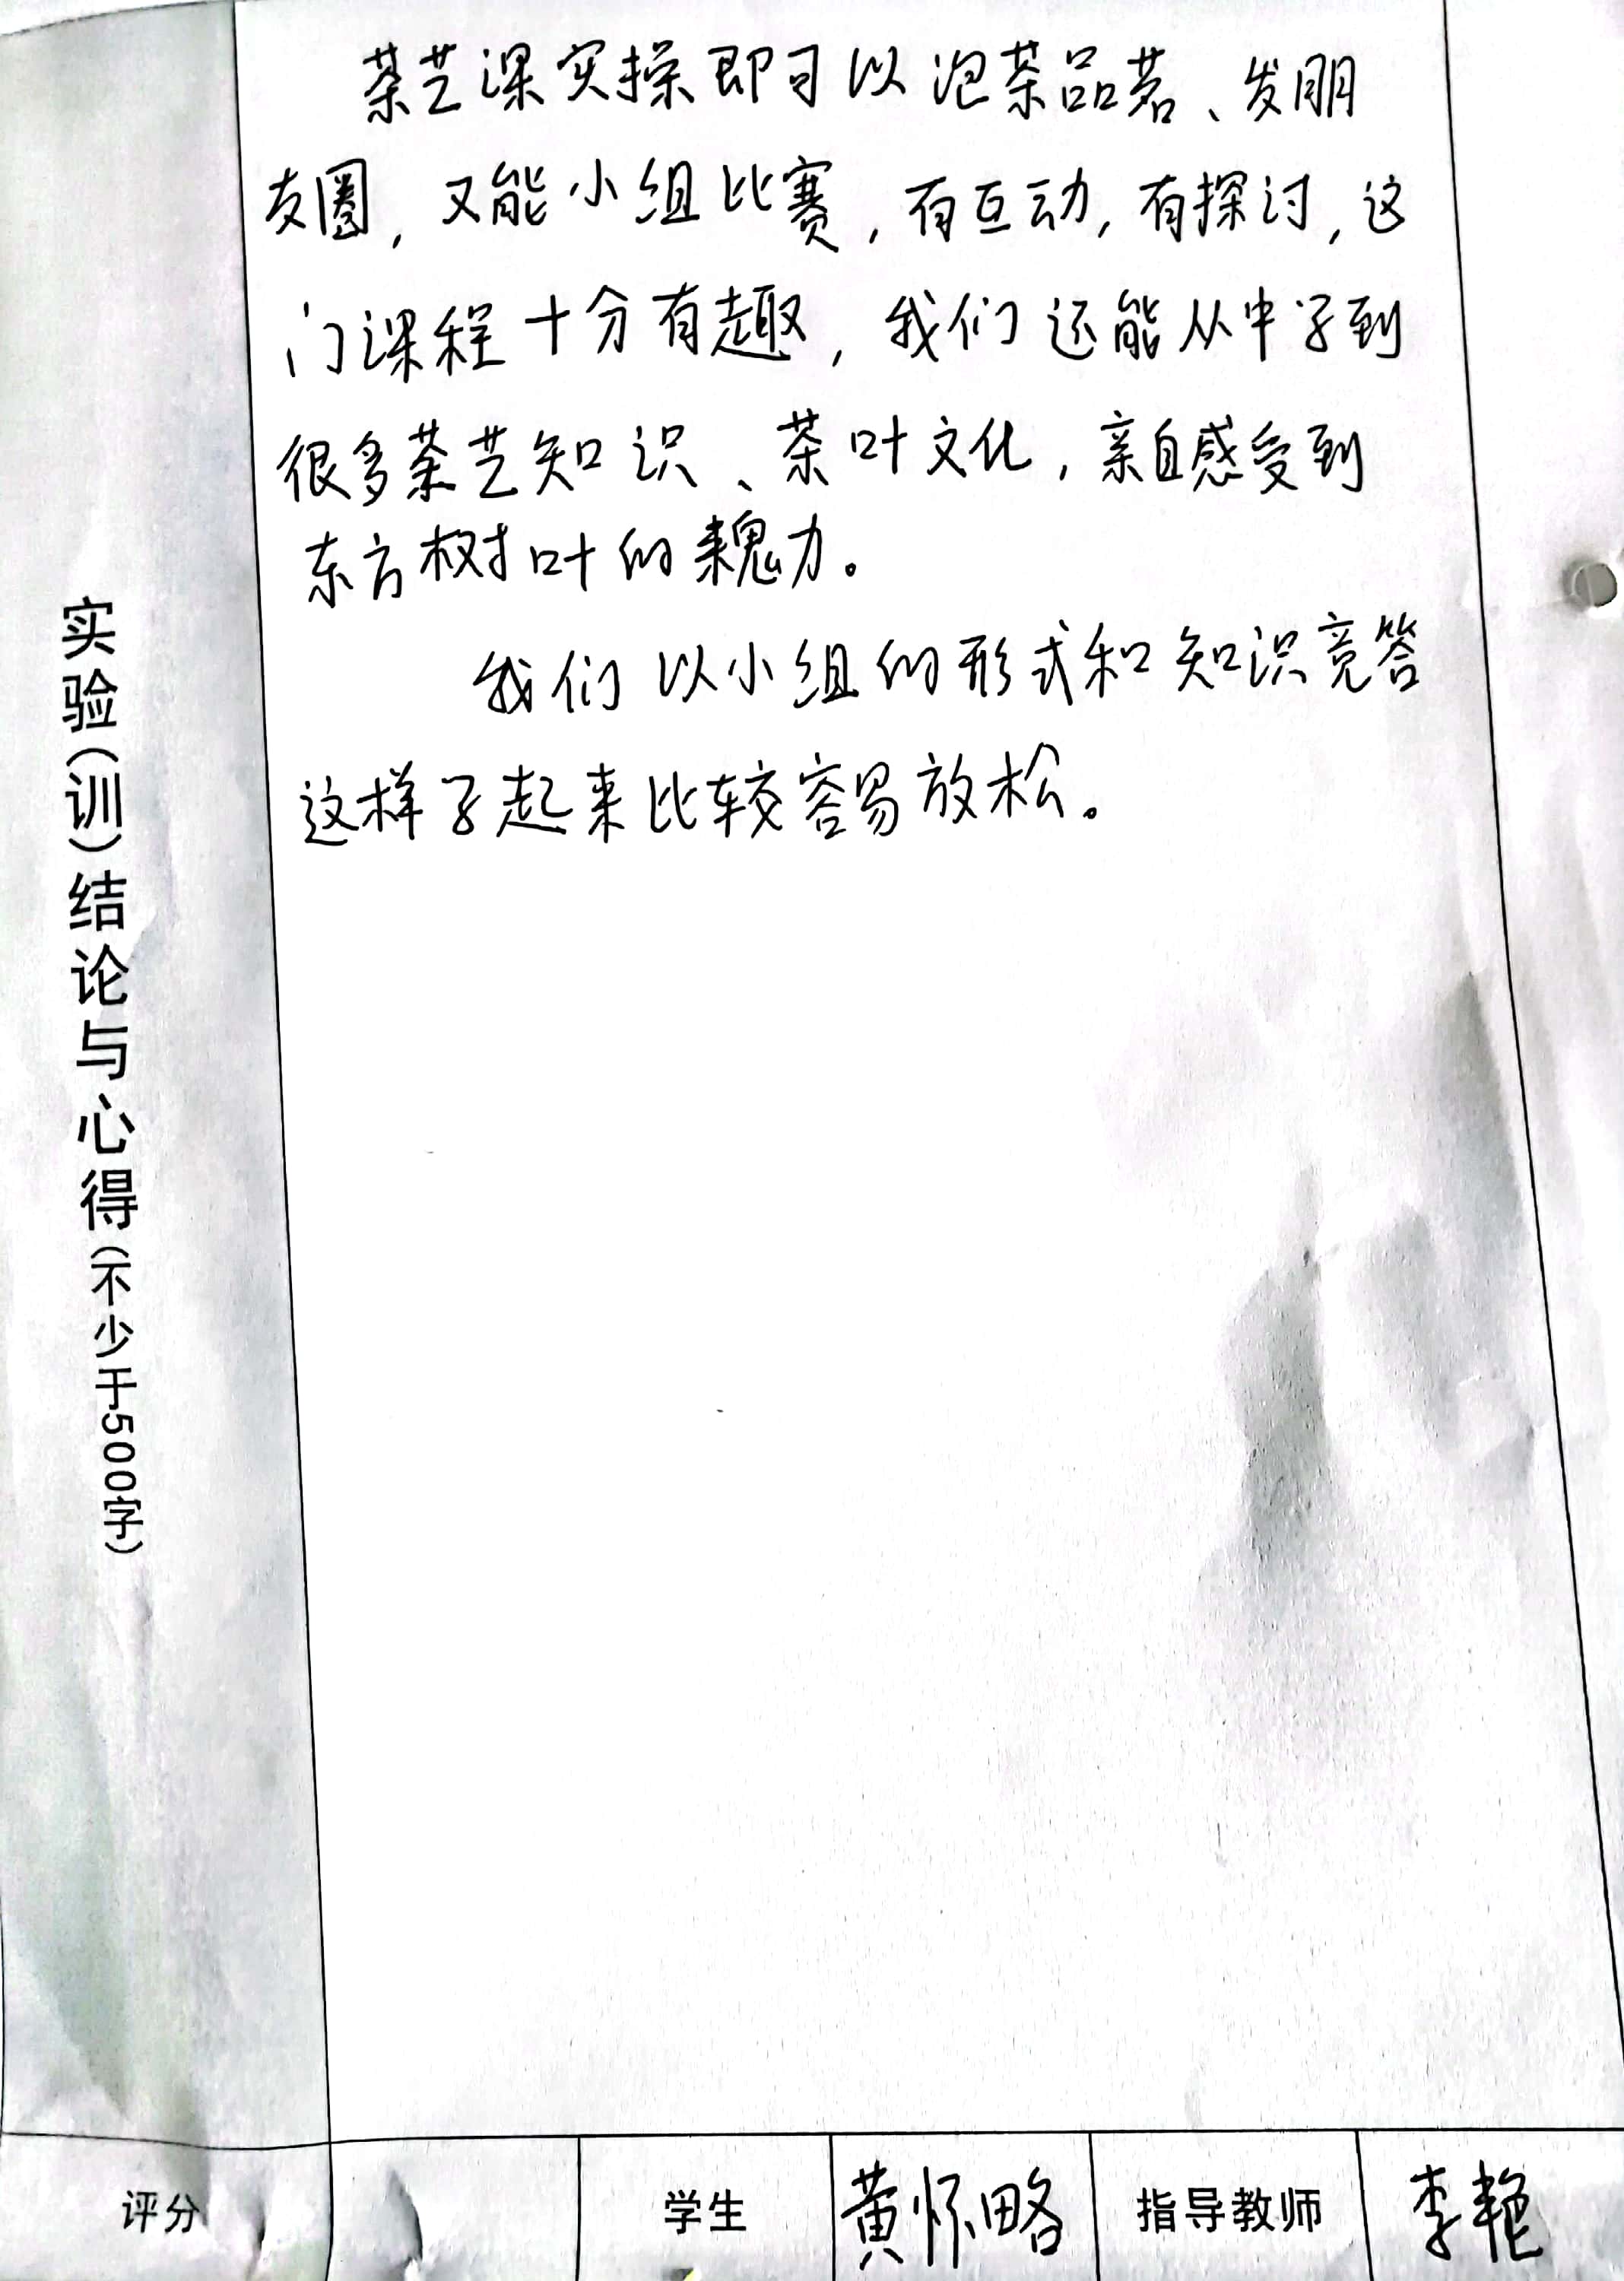 茶艺课实操即可以泡茶品茗、发朋
友圈，又能小组比赛，有互动，有探讨，这
门课程十分有趣，我们还能从中学到
很多茶艺知识、茶叶文化，亲自感受到
东方树叶的魅力。
我们以小组的形式和知识竞答
这样学起来比较容易放松。
实验（训）结论与心得（不少于500字）
评分
学生
黄怀略
指导教师
李艳